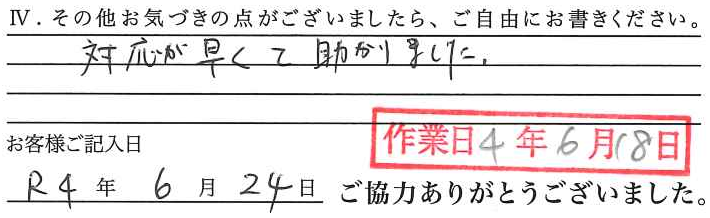 Ⅳ．その他お気づきの点がございましたら、ご自由にお書きください。
対応が早くて助かりました。
お客様ご記入日
作業日4年6月18日
R4年6月24日 ご協力ありがとうございました。